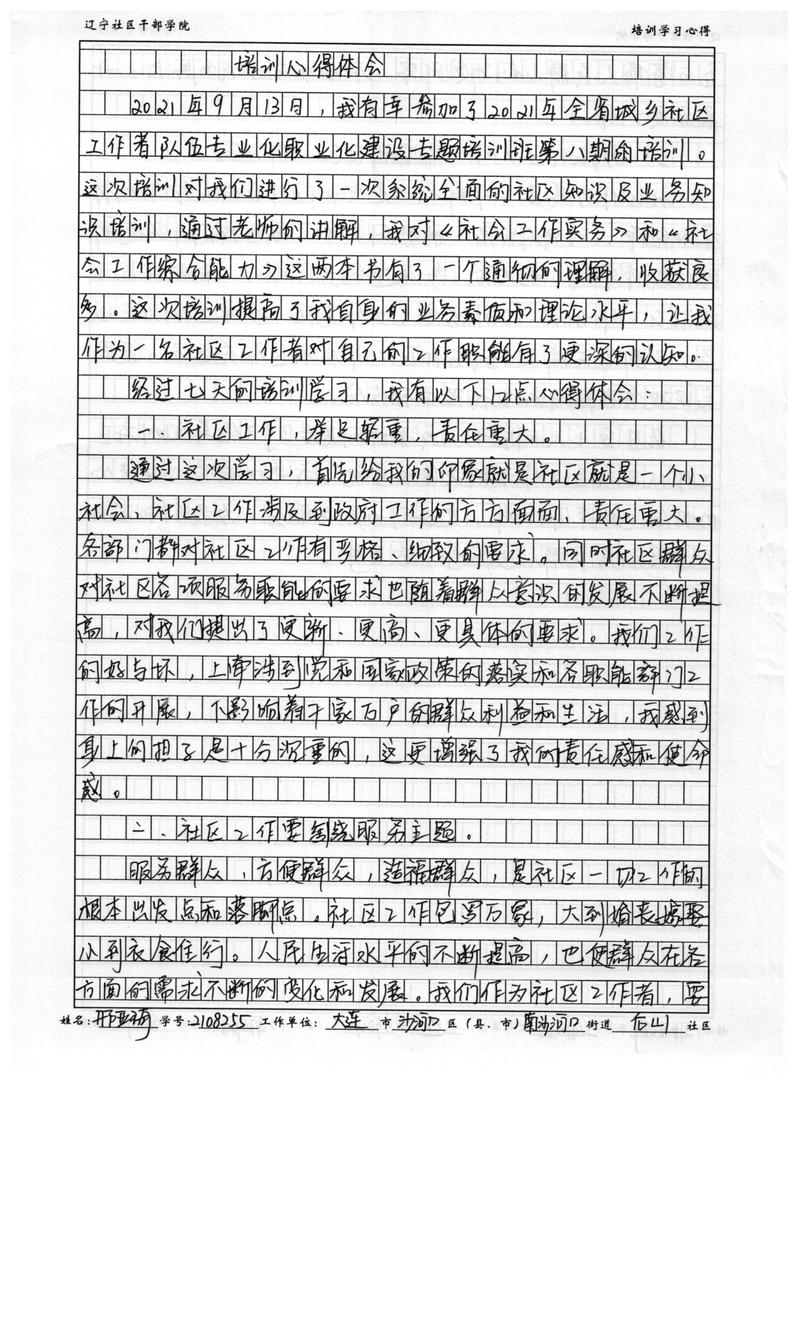 辽宁社区干部学院 培训学习心得
培训心得体会
2021年9月13日，我有幸参加了2021年全省城乡社区
工作者队伍专业化职业化建设专题培训班第八期的培训。
这次培训对我们进行了一次系统全面的社区知识及业务知
识培训，通过老师的讲解，我对《社会工作实务》和《社
会工作综合能力》这两本书有了一个通彻的理解，收获良
多。这次培训提高了我自身的业务素质和理论水平，让我
作为一名社区工作者对自己的工作职能有了更深的认知。
经过七天的培训学习，我有以下几点心得体会
一、社区工作，举足轻重，责任重大。
通过这次学习，首先给我的印象就是社区就是一个小
社会、社区工作涉及到政府工作的方方面面、责任重大。
各部门都对社区工作有严格、细致的要求，同时社区群众
对社区各项服务职能的要求也随着群众意识的发展不断提
高，对我们提出了更新、更高、更具体的要求。我们工作
的好与坏，上牵涉到党和国家政策的落实和各职能部门工
作的开展，下影响着千家万户的群众利益和生活，我感到
身上的担子是十分沉重的，这更增强了我的责任感和使命
感。
二、社区工作要围绕服务主题。
服务群众，方便群众，造福群众，是社区一切工作的
根本出发点和落脚点。社区工作包罗万象，大到婚丧嫁娶
小到衣食住行。人民生活水平的不断提高，也使群众在各
方面的需求不断的变化和发展。我们作为社区工作者，要
姓名：邢亚琦 学号：2108255 工作单位：大连 市 沙河口 区（县、市）南沙河口 街道 台山 社区